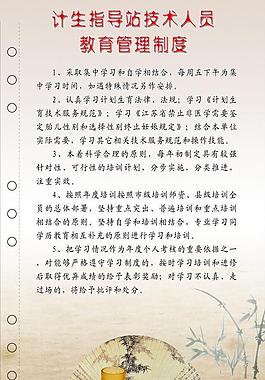 计生指导站技术人员
教育管理制度
1、采取集中学习和自学相结合，每周五下午为集
中学习时间，如遇特殊情况另作安排。
2、认真学习计划生育法律、法规；学习《计划生
育技术服务规范》；学习《江苏省禁止非医学需要鉴
定胎儿性别和选择性别终止妊娠规定》；结合本单位
实际需要，学习其它相关技术服务规范和操作技能。
3、本着科学合理的原则，每年初制定具有较强
针对性、可行性的培训计划，分步实施，分类推进，
注重实效。
4、按照年度培训按照市级培训师资、县级培训全
员的总体部署，坚持重点突出、普遍培训和重点培训
相结合的原则。坚持自学和培训相结合、专业学习同
学历教育相互补充的原则进行学习和培训。
5、把学习情况作为年度个人考核的重要依据之一
，对能够严格遵守学习制度的、按时学习培训和进修
后取得优异成绩的给予表彰奖励；对学习不认真、走
过场的，将给予批评和处分。